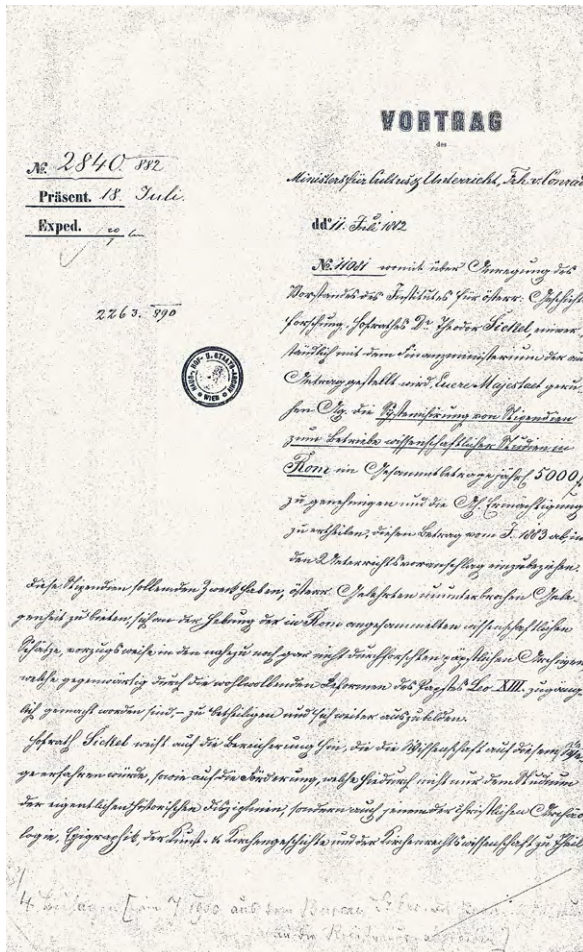 VORTRAG
des
Ministers für Cultus & Unterricht, Frh. v. Conrad
dd° 11. Juli 1882
№ 2840 882
Präsent. 18. Juli.
Exped.
2263. 890
HAUS-, HOF- U. STAATS-ARCHIV WIEN
№ 11091 womit über Anregung des
Vorstandes des Institutes für österr: Geschichts
forschung, Hofrathes Dr Theodor Sickel, einver
ständlich mit dem Finanzministerium der au
Antrag gestellt wird, Euere Majestaet geru
hen Ag. die Systemisirung von Stipendien
zum Betriebe wissenschaftlicher Studien in
Rom im Gesammtbetrage jährl 5000 f
zu genehmigen und die Ah. Ermächtigung
zu ertheilen, diesen Betrag vom J. 1883 ab, in
den Unterrichtsvoranschlag einzubeziehen.
Diese Stipendien sollen den Zweck haben, österr. Gelehrten ununterbrochen Gele
genheit zu bieten, sich an der Hebung der in Rom angesammelten wissenschaftlichen
Schätze, vorzugsweise in den nahezu noch gar nicht durchforschten päpstlichen Archiven
welche gegenwärtig durch die wohlwollenden Reformen des Papstes Leo XIII. zugäng
lich gemacht worden sind, – zu betheiligen und sich weiter auszubilden.
Hofrath Sickel weist auf die Bereicherung hin, die die Wissenschaft auf diesem We
ge erfahren würde, sowie auf die Förderung, welche hiedurch nicht nur dem Studium
der eigentlichen historischen Disziplinen, sondern auch jenem der christlichen Archäo
logie, Epigraphik, der Kunst- & Kirchengeschichte und der Kirchenrechtswissenschaft zu Theil
4 Beilagen